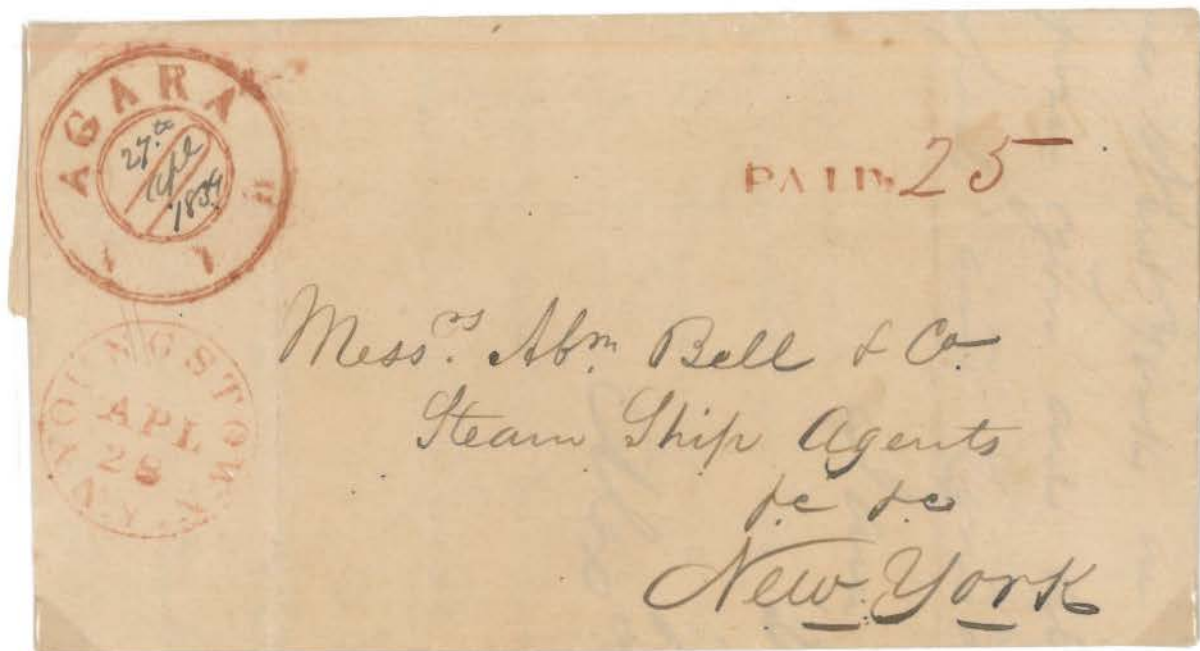 AGARA
27th
Apl
1839
PAID 25
YOUNGSTOWN N.Y.
APL
28
Messrs. Abm. Bell & Co.
Steam Ship Agents
&c &c
New York